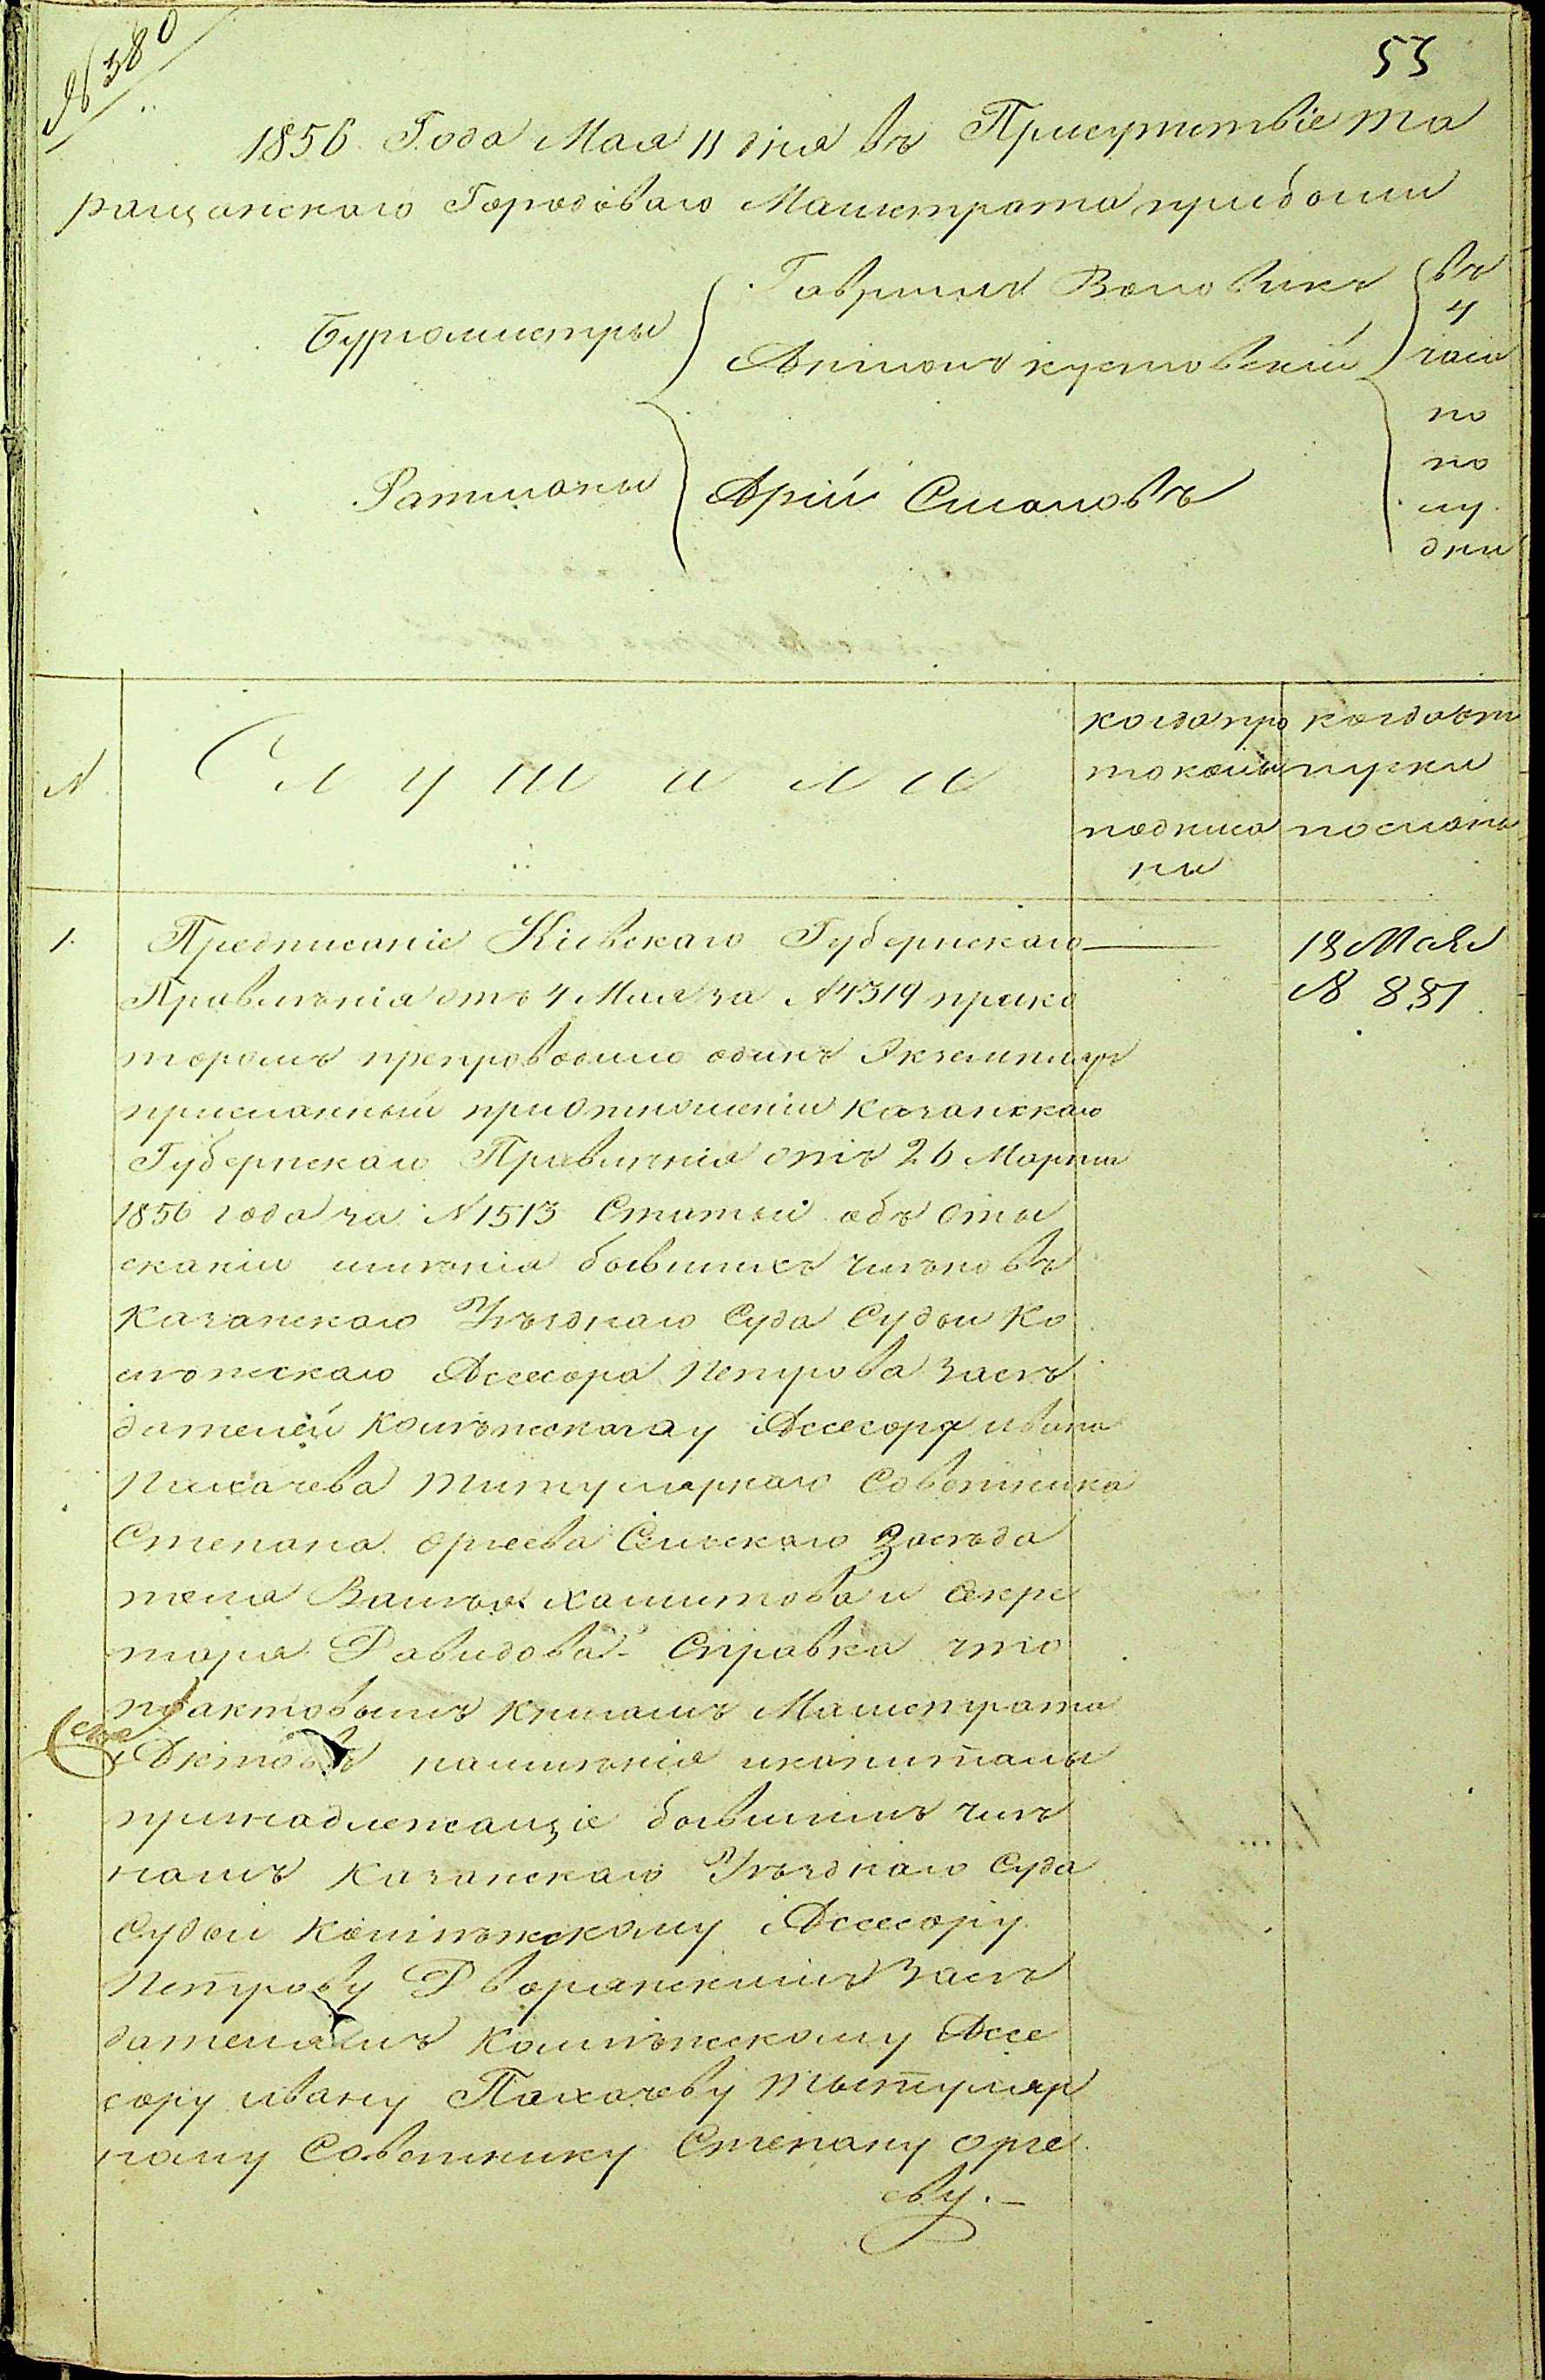 № 380
53
1856 Года Мая 11 дня въ Присутствіе Та
ращанскаго Городоваго Магистрата прибыли
Бургомистры
Гавриилъ Воловикъ
Антонъ кустовскій
Ратманы
Арій Смаловъ
въ
4
часа
по
по
лу
дни
N
Слушали
когда про
токолы
подписа
ны
когда от
пуски
посланы
1.
Предписаніе Кіевскаго Губернскаго
Правленія отъ 4 Мая за N 4319 прико
торомъ препроводило одинъ Экземпляръ
присланный приотношеніи Казанскаго
Губернскаго Правленія отъ 26 Марта
1856 года за N 1513 Статьи объ оты
сканіи имѣнія бывшихъ членовъ
Казанскаго Уѣзднаго Суда Судьи Ко
лѣжскаго Асесора Петрова Засѣ
дателей Колѣжскагоу Асесору ивана
Пахачева Титулярнаго Советника
Степана оргеева Сельскаго Засѣда
теля Хамитова и Секре
таря Давидова. Справка что
поактовымъ книгамъ Магистрата
Актовъ наимѣнія икапиталы
принадлежащіе бывшимъ члѣ
намъ Казанскаго Уѣзднаго Суда
Судьи Колѣжскому Асесору
Петрову Дворянскимъ Засѣ
дателямъ Колѣжскому Асе
сору ивану Пахачеву Тытуляр
ному Советнику Степану орге
еву.
18 Мая
N 881